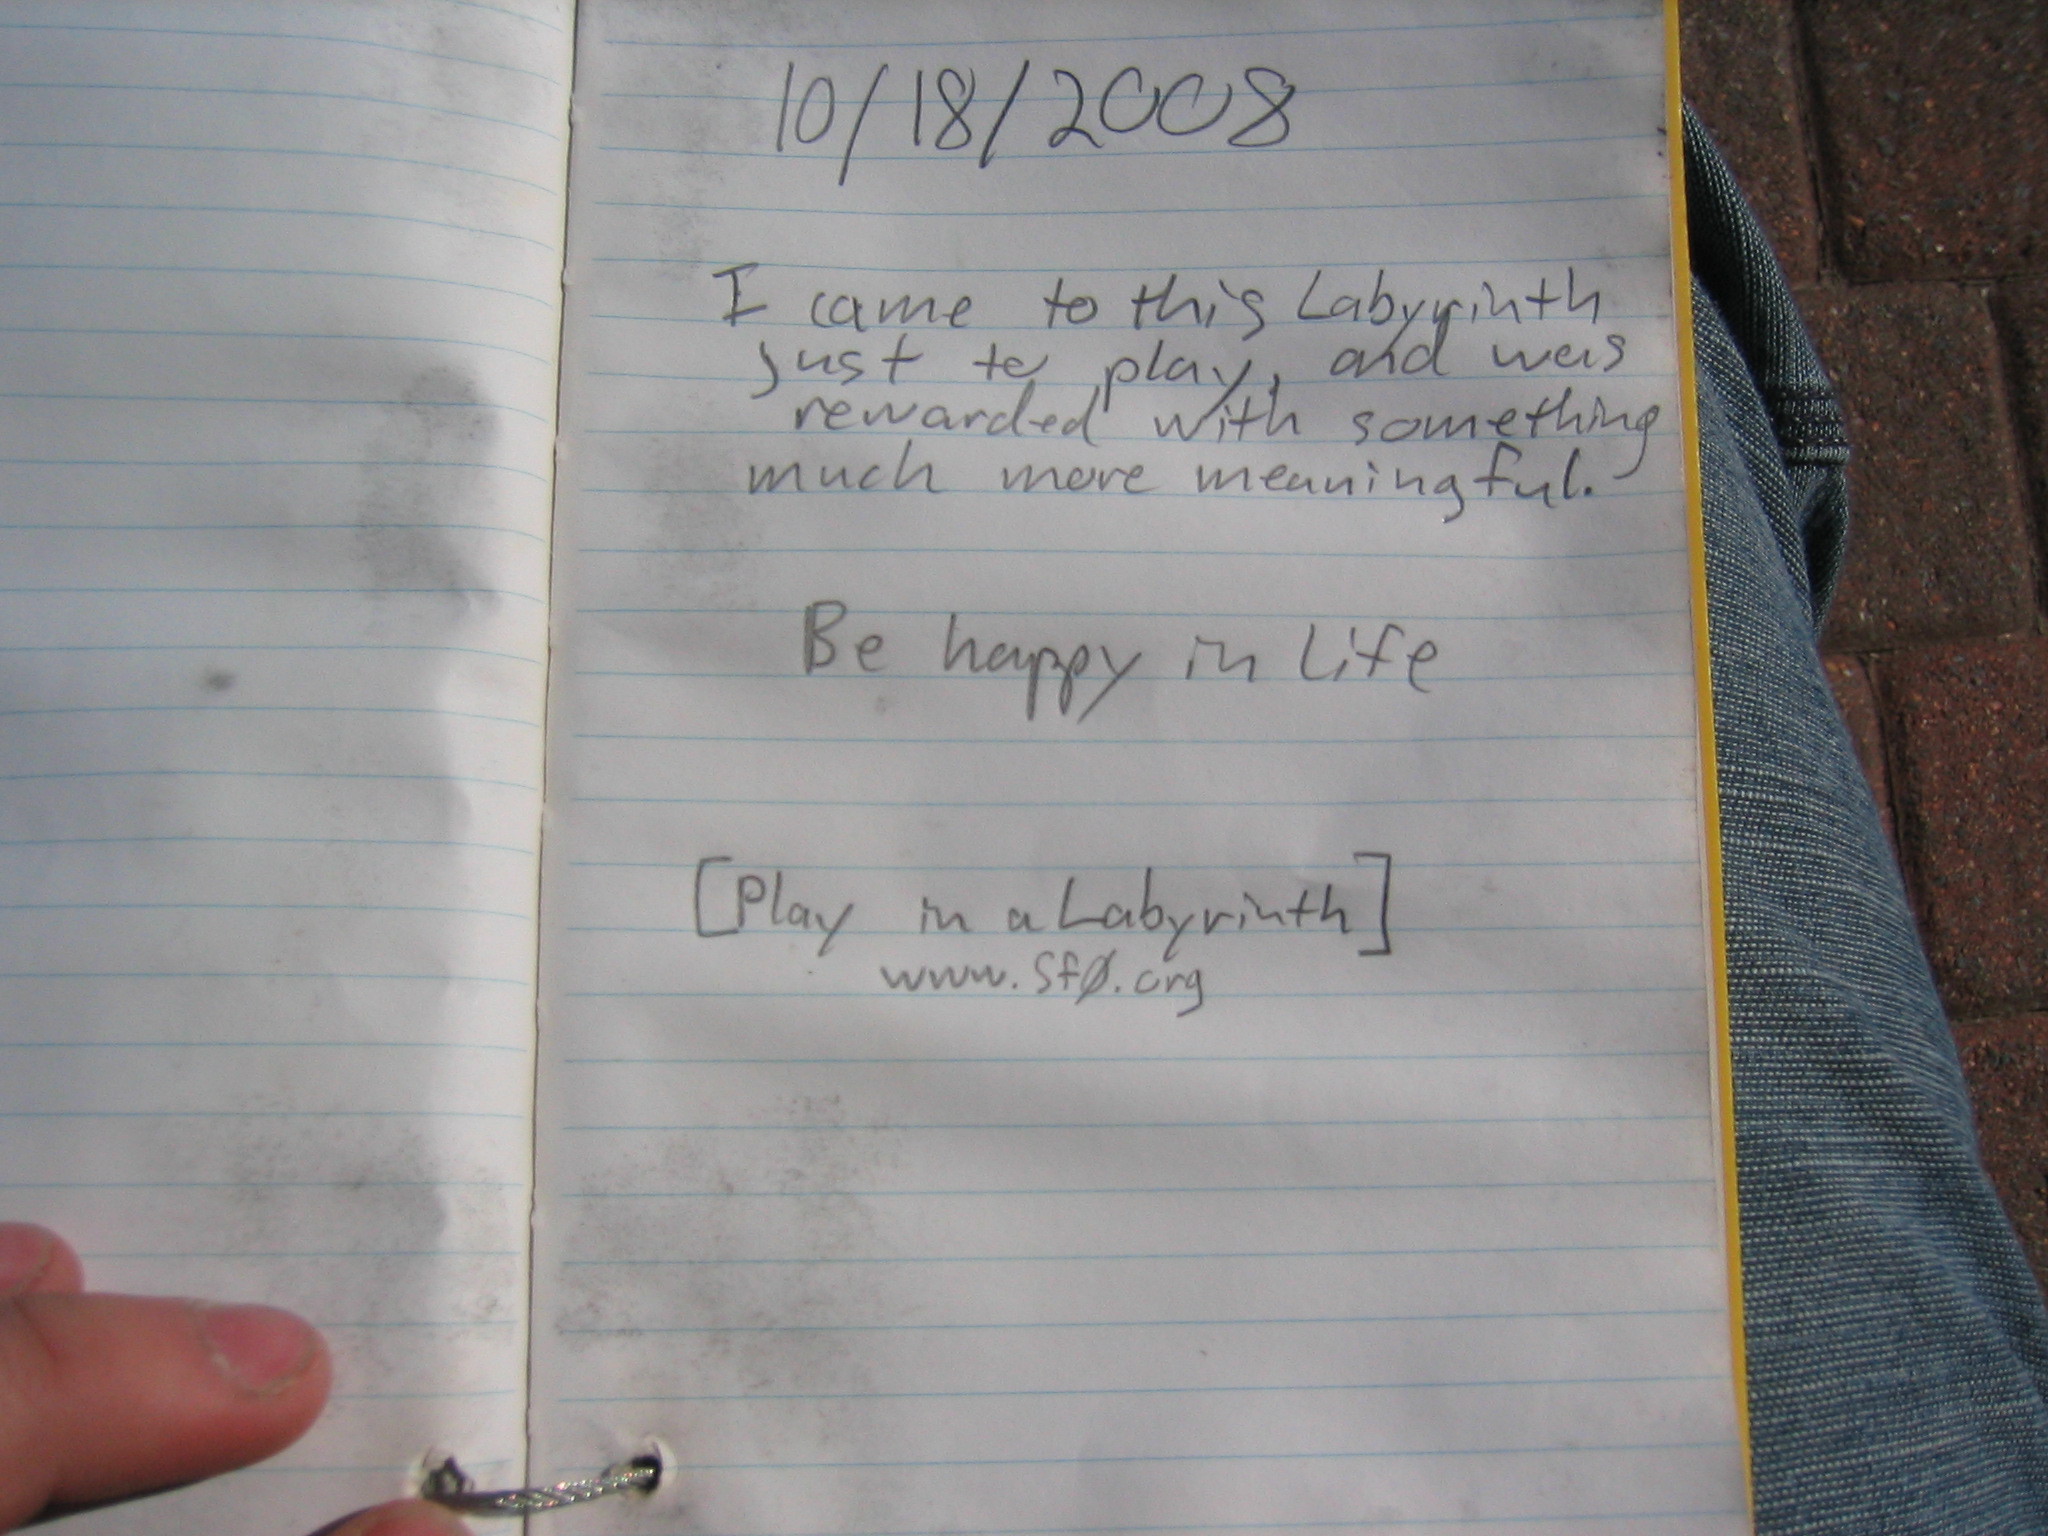 10/18/2008
I came to this Labyrinth
just to play, and was
rewarded with something
much more meaningful.
Be happy in Life
[Play in a Labyrinth]
www.sfØ.org